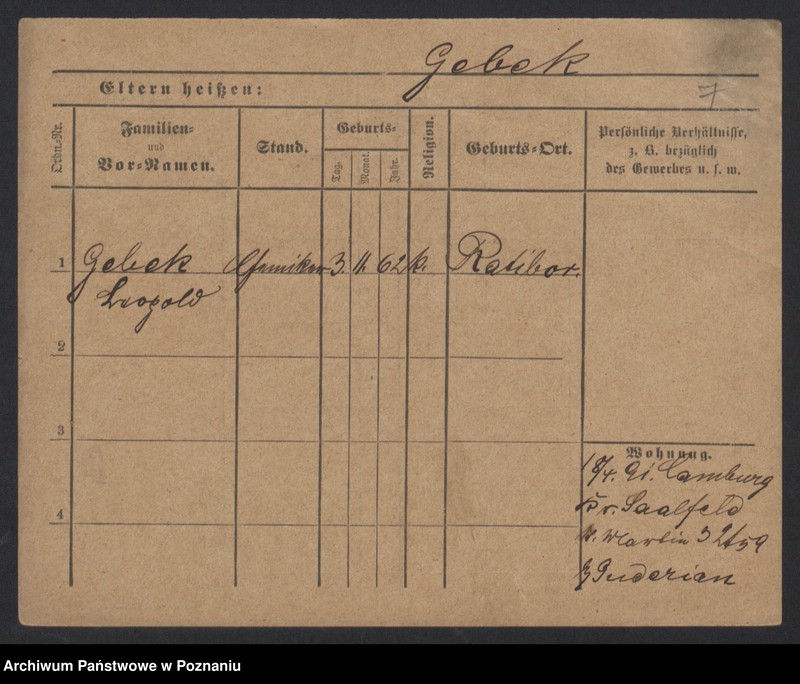 Gebek
Eltern heißen:
7
Ordn.-Nr.
Familien-
und
Vor-Namen.
Stand.
Geburts-
Tag.
Monat.
Jahr.
Religion.
Geburts-Ort.
Persönliche Verhältnisse,
z. B. bezüglich
des Gewerbes u. s. w.
1 Gebek Chemiker 3. 11. 62 k. Ratibor.
Leopold
2
3
4
Wohnung.
18/4. 91. Camburg
Kr. Saalfeld
St. Martin 32
Guderian
Archiwum Państwowe w Poznaniu